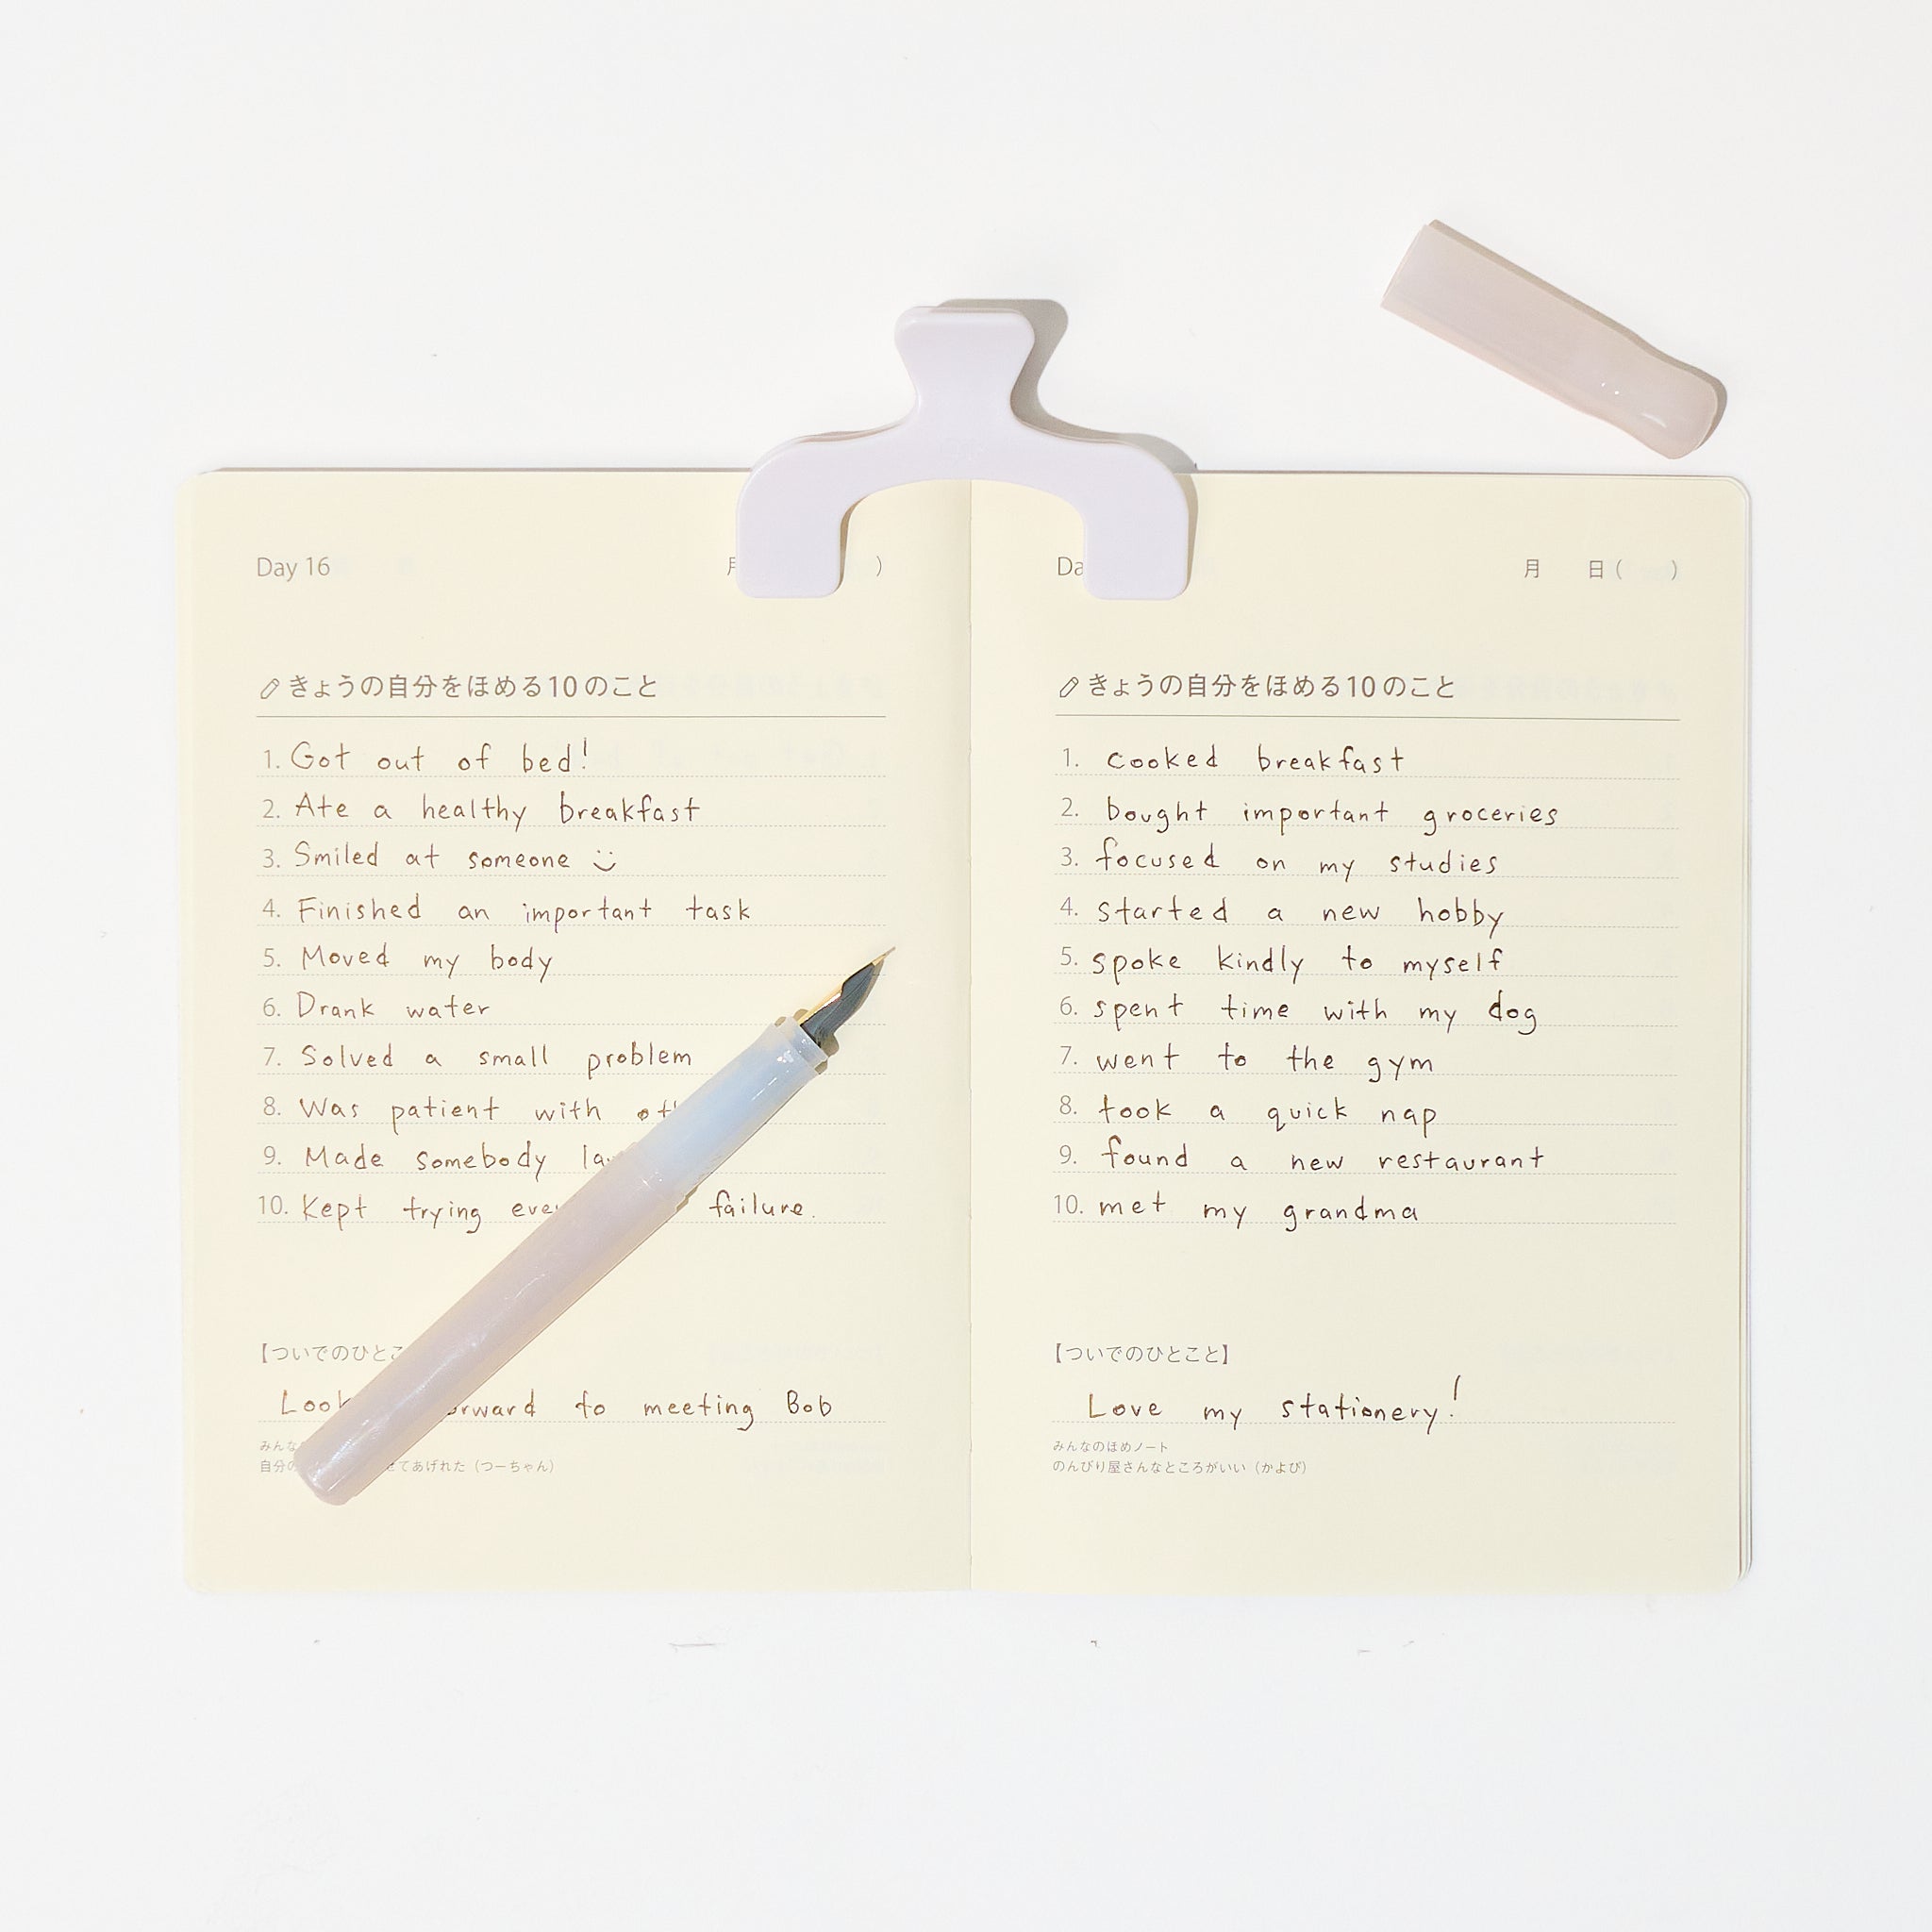 Day 16
)
きょうの自分をほめる10のこと
1. Got out of bed!
2. Ate a healthy breakfast
3. Smiled at someone
4. Finished an important task
5. Moved my body
6. Drank water
7. Solved a small problem
8. Was patient with
9. Made somebody
10. Kept trying failure.
【ついでのひとこ
to meeting Bob
てあげれた（つーちゃん）
月 日（ ）
きょうの自分をほめる10のこと
1. cooked breakfast
2. bought important groceries
3. focused on my studies
4. started a new hobby
5. spoke kindly to myself
6. spent time with my dog
7. went to the gym
8. took a quick nap
9. found a new restaurant
10. met my grandma
【ついでのひとこと】
Love my stationery!
みんなのほめノート
のんびり屋さんなところがいい（かよぴ）